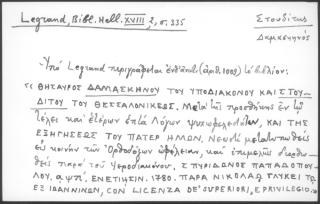 Legrand, Bibl. Hell. XVIII, 2, σ. 335
Στουδίτης
Δαμασκηνός
Ὑπὸ Legrand περιγράφεται ἐνθ' ἀνωτ. (ἀριθ. 1009) τὸ βιβλίον:
"ΘΗΣΑΥΡΟΣ ΔΑΜΑΣΚΗΝΟΥ ΤΟΥ ΥΠΟΔΙΑΚΟΝΟΥ ΚΑΙ ΣΤΟΥ-
ΔΙΤΟΥ ΤΟΥ ΘΕΣΣΑΛΟΝΙΚΕΩΣ. Μετὰ τῆς προσθήκης ἐν τῷ
τέλει καὶ ἑτέρων ἑπτὰ Λόγων ψυχωφελεστάτων, ΚΑΙ ΤΗΣ
ΕΞΗΓΗΣΕΩΣ ΤΟΥ ΠΑΤΕΡ ΗΜΩΝ, Νεωστὶ μετατυπωθεὶς
εἰς κοινὴν τῶν Ὀρθοδόξων ὠφέλειαν, καὶ ἐπιμελῶς διορθω-
θεὶς παρὰ τοῦ Ἱεροδιακόνου, ΣΠΥΡΙΔΩΝΟΣ ΠΑΠΑΔΟΠΟΥ-
ΛΟΥ. αψπ'. ΕΝΕΤΙΗΣΙΝ. 1780. ΠΑΡΑ ΝΙΚΟΛΑΩ ΓΛΥΚΕΙ ΤΩ
ΕΞ ΙΩΑΝΝΙΝΩΝ, CON LICENZA DE' SUPERIORI, E PRIVILEGIO.